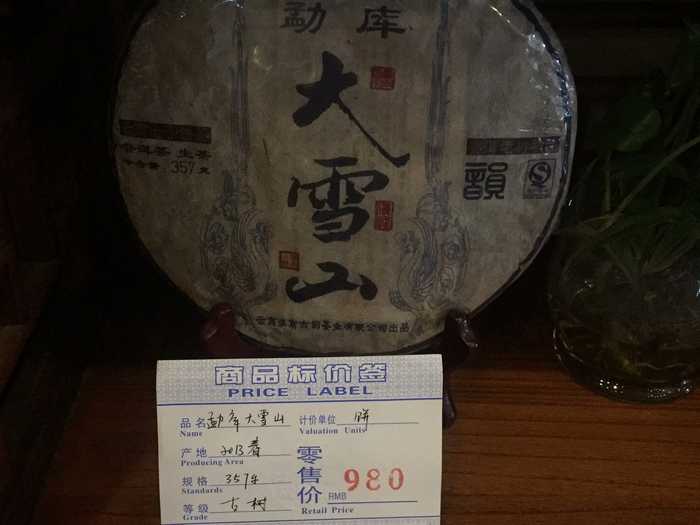 勐库
大雪山
普洱茶 生茶
净含量:357克
韻
商品标价签
PRICE LABEL
品名 勐库大雪山 计价单位 饼
Name Valuation Units
产地 2013春
Producing Area
规格 357克
Standards
等级 古树
Grade
零售价 RMB 980
Retail Price